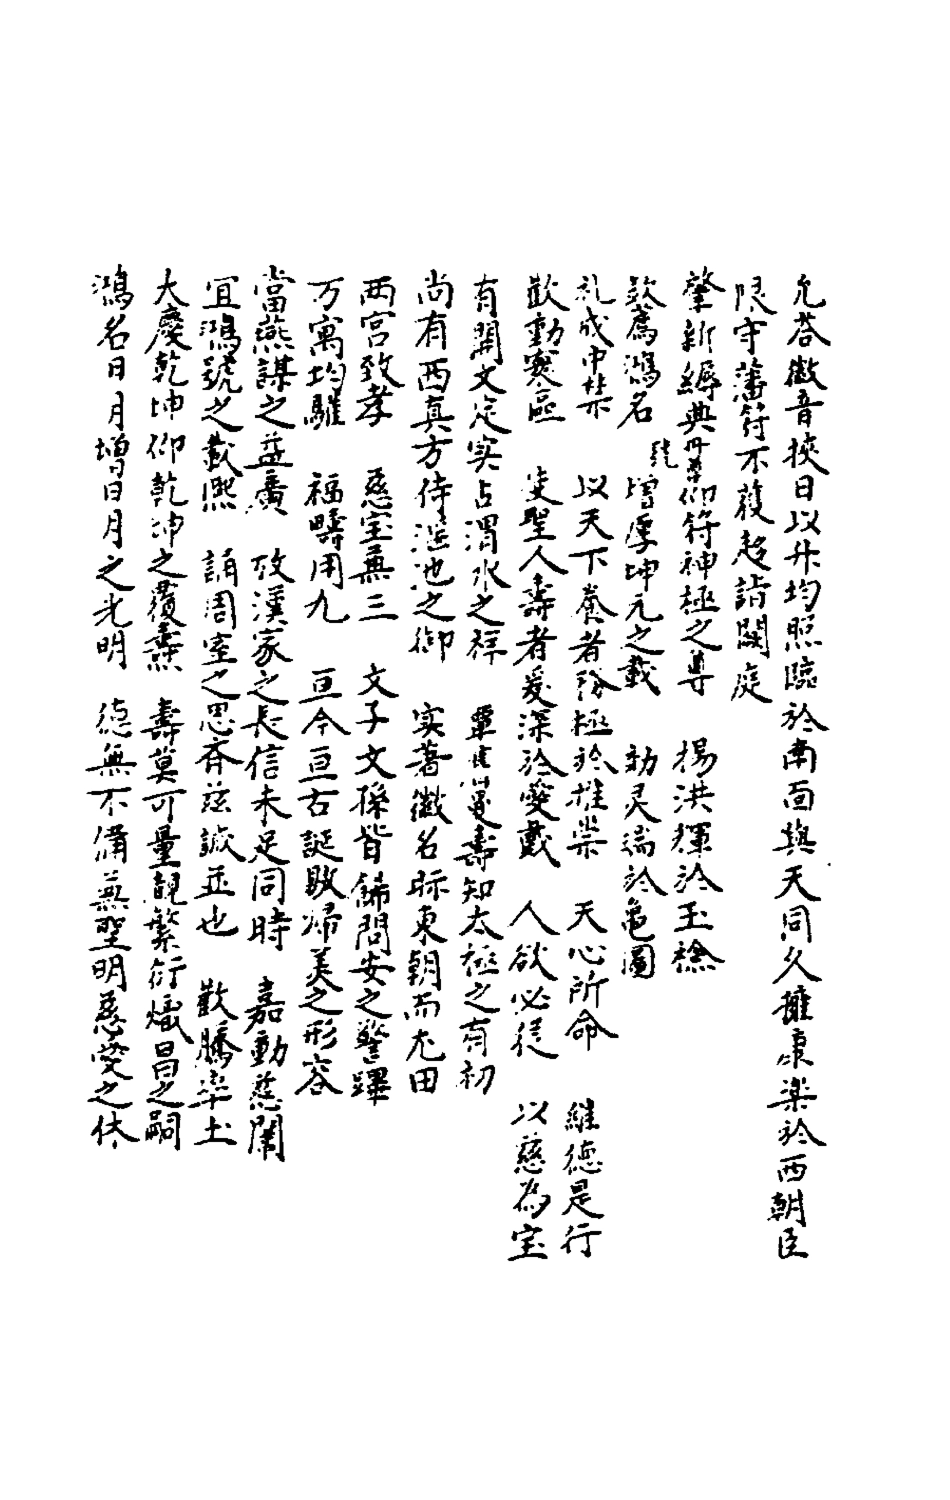 允荅徽音挾日以升均照臨於南面與天同久擁康楽於西朝臣
限守藩符不獲趍詣闕庭
肇新縟典冊尊仰符神極之尊 揚洪輝於玉検
欽薦鴻名 號 增厚坤元之載 効灵瑞於亀圖
礼成中禁 以天下養者務極於推崇 天心所命 維德是行
歡動寰區 受聖人壽者爰深於愛戴 人欲必從 以慈為宝
有開文定实占渭水之祥 曼壽知太極之有初
尚有西真方侍瑶池之御 实著徽名昹東朝而尤田
兩宮致孝 慈宝無三 文子文孫皆歸問安之警蹕
万寓均驩 福疇用九 亘今亘古誕敷歸美之形容
當燕謀之益廣 攷漢家之長信未足同時 嘉動慈闈
宜鴻號之載熙 誦周室之思齊茲誠並也 歡騰率土
大慶乾坤仰乾坤之覆燾 壽莫可量覩繁衍熾昌之嗣
鴻名日月增日月之光明 德無不備兼聖明慈愛之休